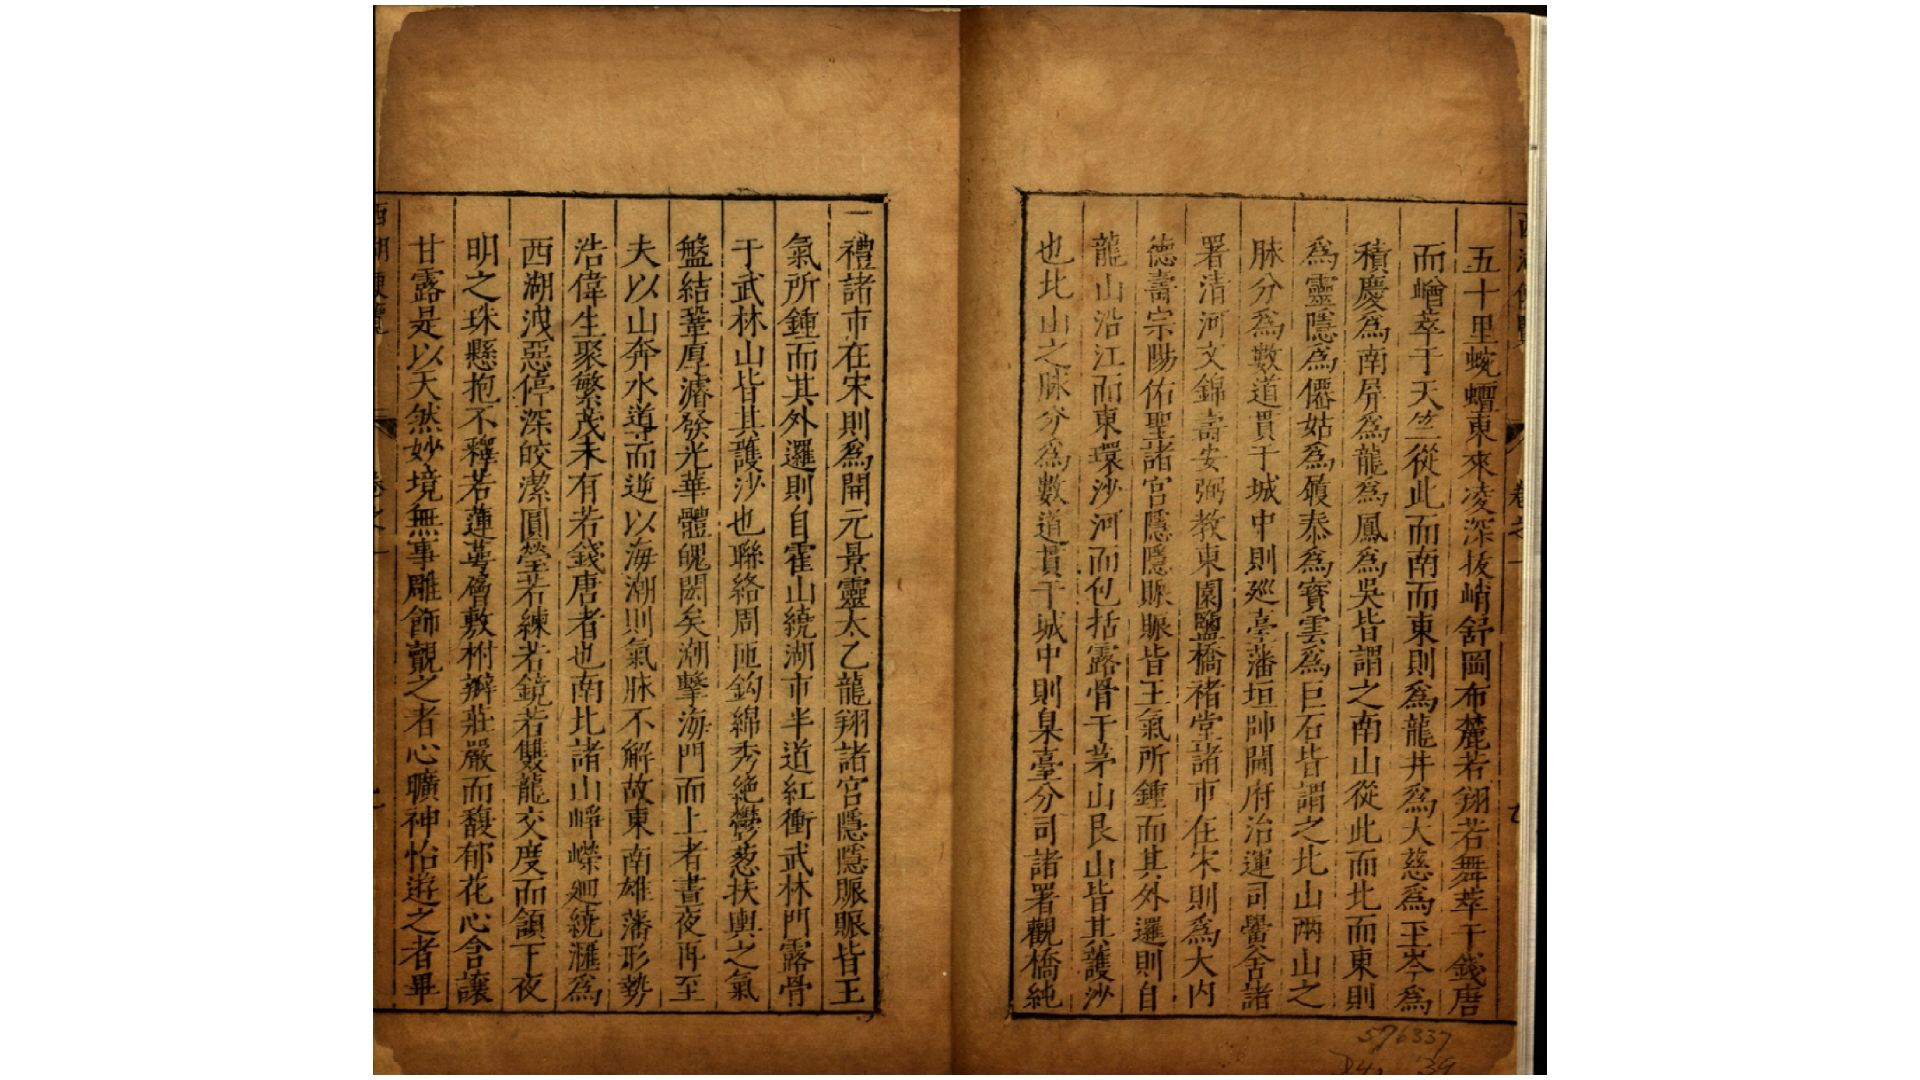 五十里蜿蟺東來凌深拔峭舒岡布麓若翔若舞萃于錢唐
而嶒萃于天竺從此而南而東則爲龍井爲大慈爲玉岑爲
積慶爲南屏爲龍爲鳳爲吳皆謂之南山從此而北而東則
爲靈隱爲僊姑爲履泰爲寶雲爲巨石皆謂之北山兩山之
脉分爲數道貫于城中則廵臺藩垣帥閫府治運司黌舍諸
署清河文錦壽安弼教東園鹽橋褚堂諸市在宋則爲大内
德壽宗陽佑聖諸宮隱隱賑賑皆王氣所鍾而其外邏則自
龍山沿江而東環沙河而包括露骨于茅山艮山皆其護沙
也北山之脉分爲數道貫于城中則臬臺分司諸署觀橋純
禮諸市在宋則爲開元景靈太乙龍翔諸宮隱隱賑賑皆王
氣所鍾而其外邏則自霍山繞湖市半道紅衝武林門露骨
于武林山皆其護沙也聯絡周匝鈎綿秀絶鬱葱扶輿之氣
盤結鞏厚濬發光華體魄閎矣潮擊海門而上者晝夜再至
夫以山奔水導而逆以海潮則氣脉不解故東南雄藩形勢
浩偉生聚繁茂未有若錢唐者也南北諸山崢嶸廻繞滙爲
西湖洩惡停深皎潔圓瑩若練若鏡若雙龍交度而頷下夜
明之珠懸抱不釋若蓮萼層敷柎瓣莊嚴而馥郁花心含讓
甘露是以天然妙境無事雕飾覩之者心曠神怡遊之者畢
卷之一
576337